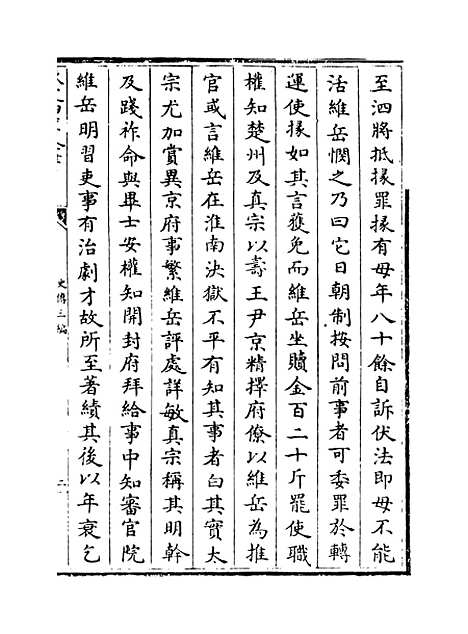 至泗將抵掾罪掾有母年八十餘自訴伏法即母不能
活維岳憫之乃曰它日朝制按問前事者可委罪於轉
運使掾如其言獲免而維岳坐贖金百二十斤罷使職
權知楚州及真宗以壽王尹京精擇府僚以維岳為推
官或言維岳在淮南決獄不平有知其事者白其實太
宗尤加賞異京府事繁維岳評處詳敏真宗稱其明幹
及踐祚命與畢士安權知開封府拜給事中知審官院
維岳明習吏事有治劇才故所至著績其後以年衰乞
史傳三編